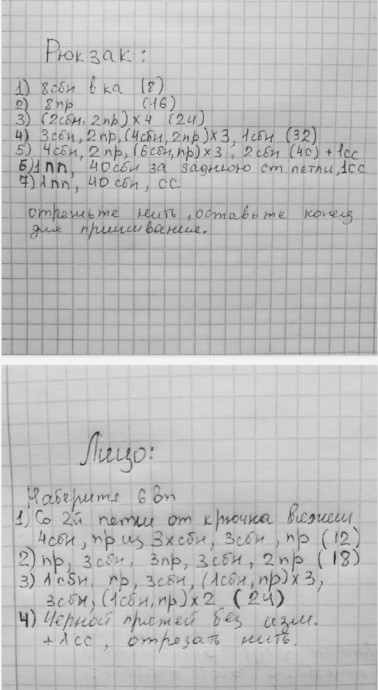 Рюкзак:
1) 8сбн в ка (8)
2) 8пр (16)
3) (2сбн, 2пр)х4 (24)
4) 3сбн, 2пр, (4сбн, 2пр)х3, 1сбн (32)
5) 4сбн, 2пр, (6сбн, пр)х3, 2сбн (40) + 1сс
6) 1пп, 40сбн за заднюю ст. петли, 1сс
7) 1пп, 40сбн, сс
отрежьте нить, оставьте конец
для пришивания.
Лицо:
Наберите 6вп
1) Со 2й петли от крючка вяжем
4сбн, пр из 3хсбн, 3сбн, пр (12)
2) пр, 3сбн, 3пр, 3сбн, 2пр (18)
3) 1сбн, пр, 3сбн, (1сбн, пр)х3,
3сбн, (1сбн, пр)х2 (24)
4) Черной пряжей без изм.
+ 1сс, отрезать нить.